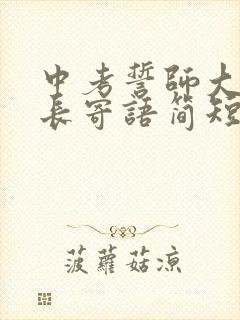 中考誓師大
長寄語简短
菠蘿菇凉